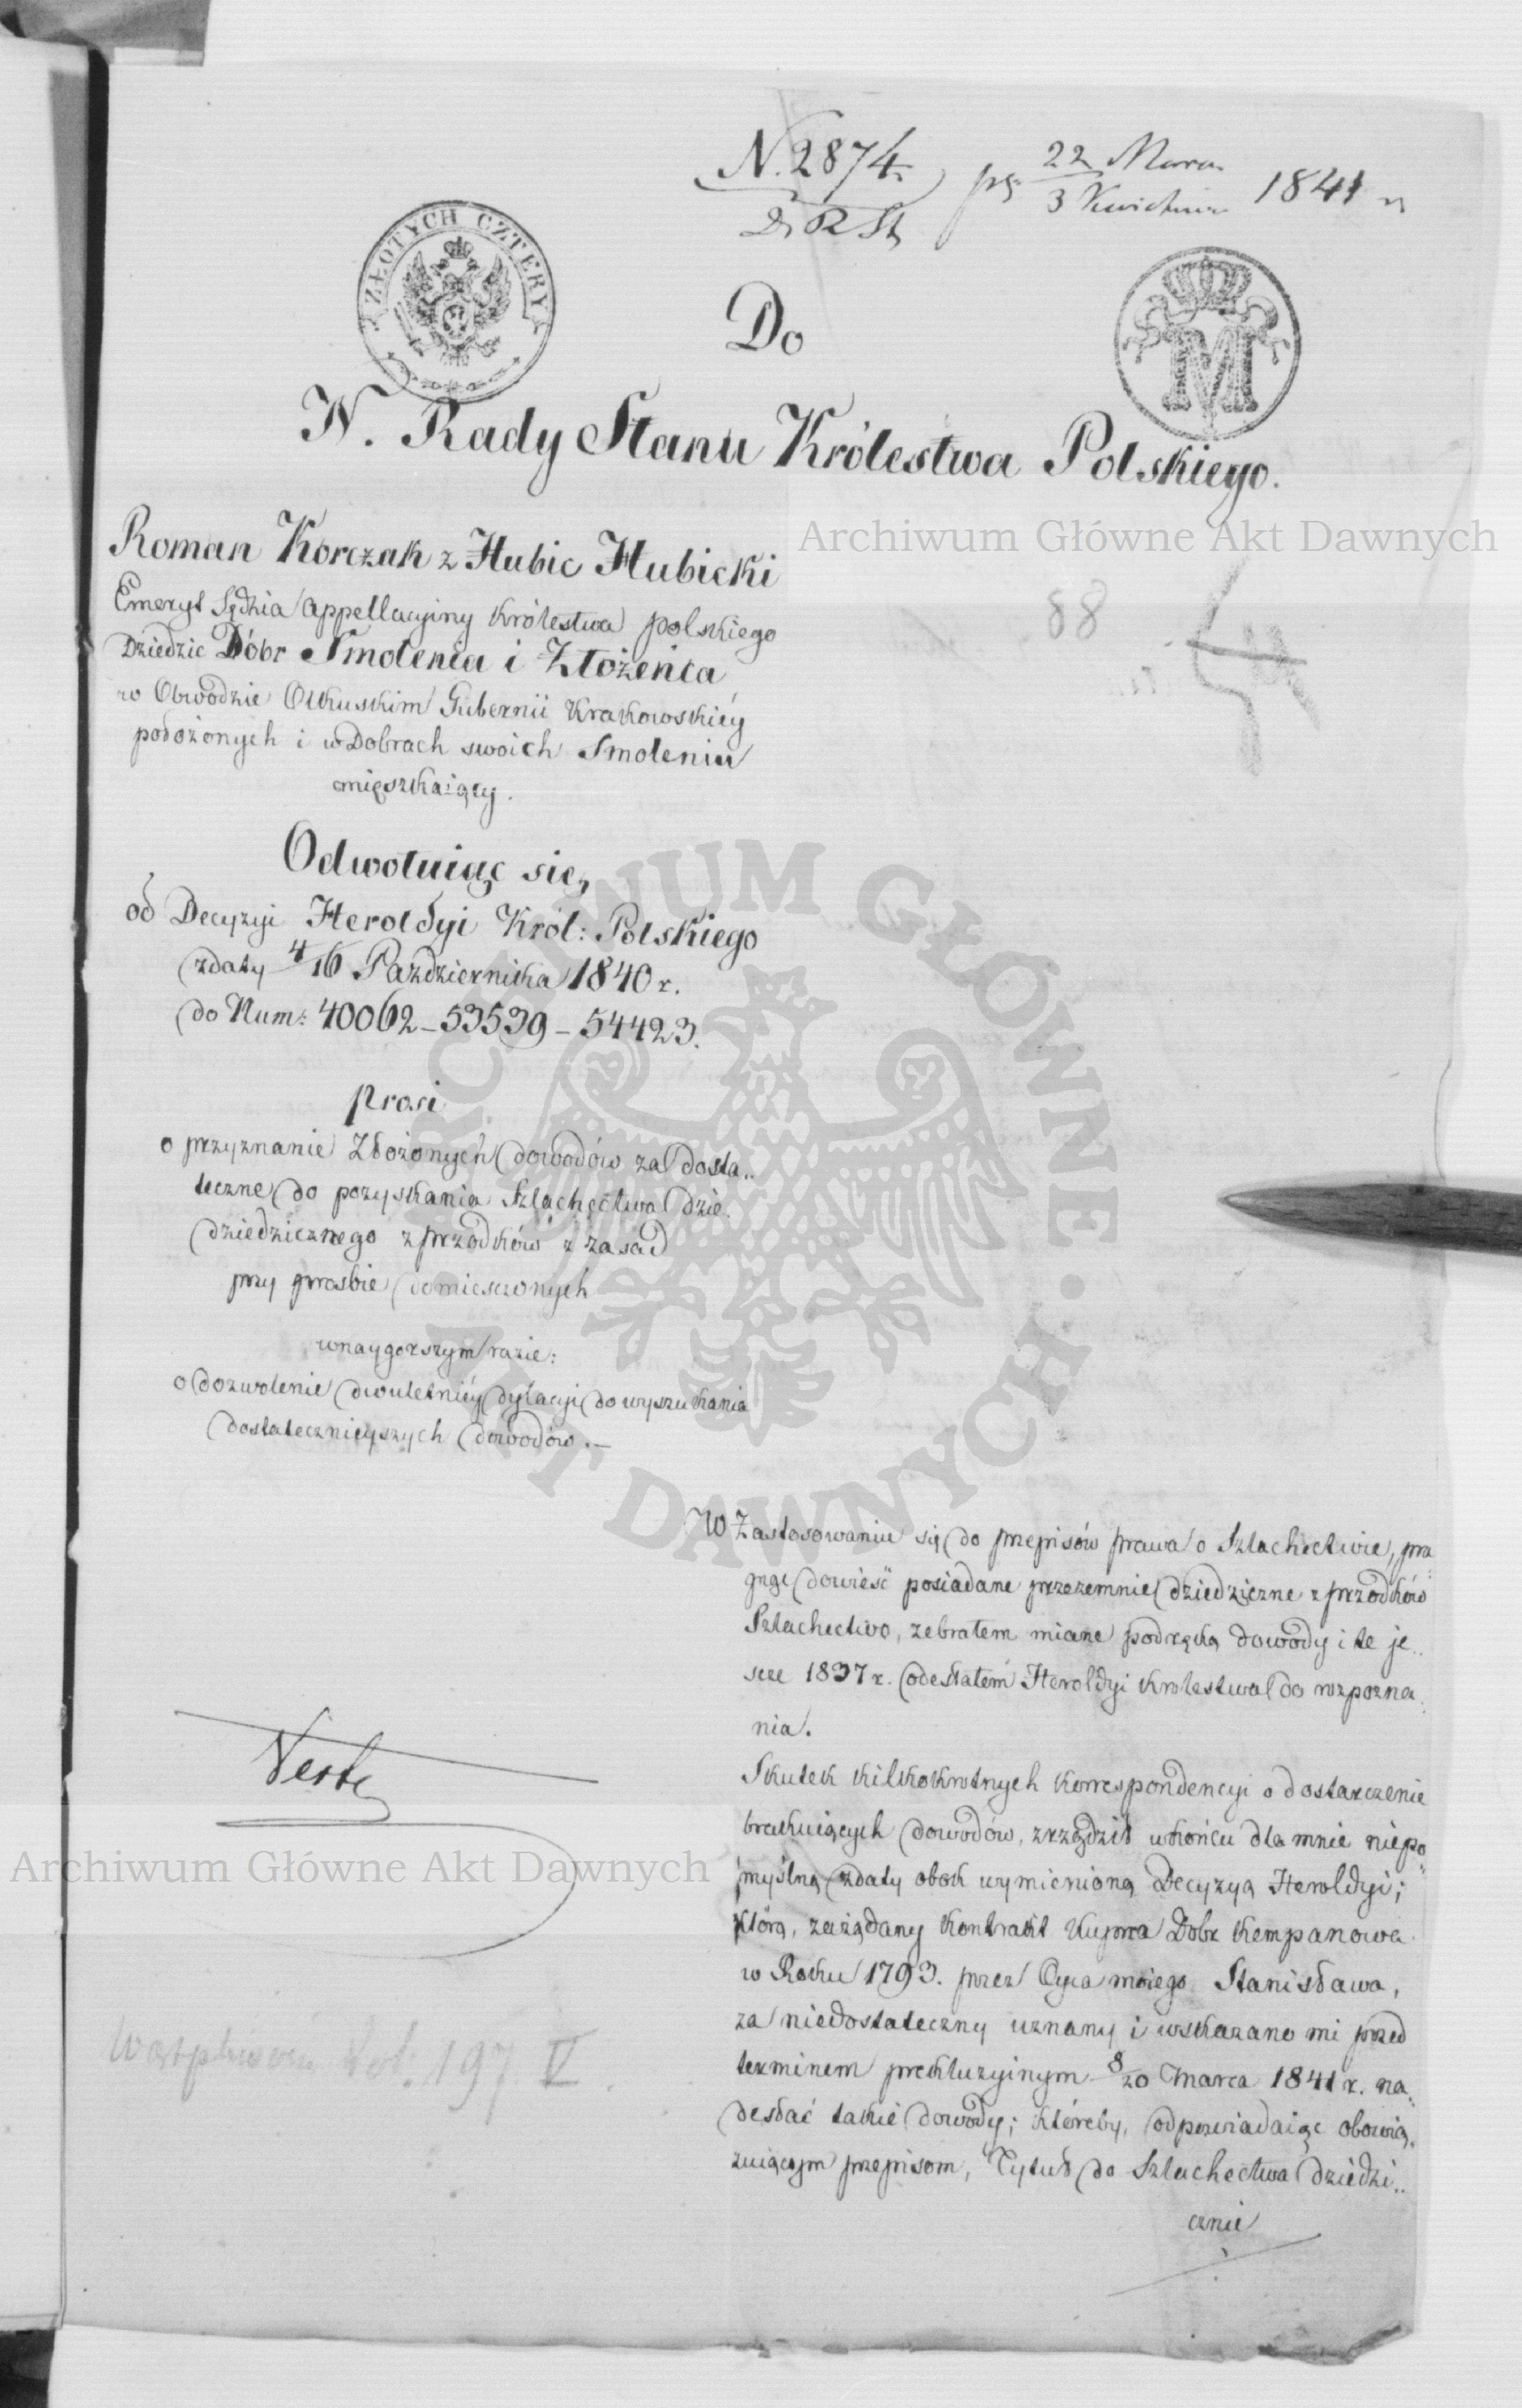 N. 2874.
D. R. St.
22 Marca
3 Kwietnia
1841 r
ZŁOTYCH CZTERY
M
Do
N. Rady Stanu Królestwa Polskiego.
Archiwum Główne Akt Dawnych
88
Roman Korczak z Hubic Hubicki
Emeryt Sędzia Appellacyiny Królestwa polskiego
Dziedzic Dóbr Smolenia i Złożeńca
w Obwodzie Olkuskim Gubernii Krakowskiéy
położonych i w Dobrach swoich Smoleniu
mięszkaiący.
Odwołuiąc się,
od Decyzyi Heroldyi Król: Polskiego
z daty 4/16 Października 1840 r.
do Num: 40062 – 53539 – 54423.
prosi
o przyznanie Złożonych dowodów za dosta..
teczne do pozyskania Szlachectwa dzie.
dziedzicznego z przodków z zasad
przy prosbie umiesczonych
w naygorszym razie:
o dozwolenie dwuletniéy dylacyi do wyszukania
dostatecznieyszych dowodów. –
ARCHIWUM GŁÓWNE AKT DAWNYCH
W Zastosowaniu się do przepisów prawa o Szlachectwie, pra
gnąc dowieść posiadane przezemnie dziedziczne z przodków
Szlachectwo, zebrałem miane pod ręką dowody i te je..
scze 1837 r. odesłałem Heroldyi Krolestwa do rozpozna.
nia.
Skutek kilkokrotnych korrespondencyi o dostarczenie
brakuiących dowodów, zrządził w końcu dla mnie niepo
myślną z daty obok wymienioną Decyzyą Heroldyi;
którą, zażądany Kontrakt Kupna Dóbr Kempanowa
w Roku 1793. przez Oyca moiego Stanisława,
za niedostateczny uznany i wskazano mi przed
terminem prekluzyinym 8/20 Marca 1841 r. na..
desłać takie dowody; któreby, odpowiadaiąc obowią.
zuiącym przepisom, Tytuł do Szlachectwa dziedzi..
cznie
Verte
Archiwum Główne Akt Dawnych
Vol. 197 V.